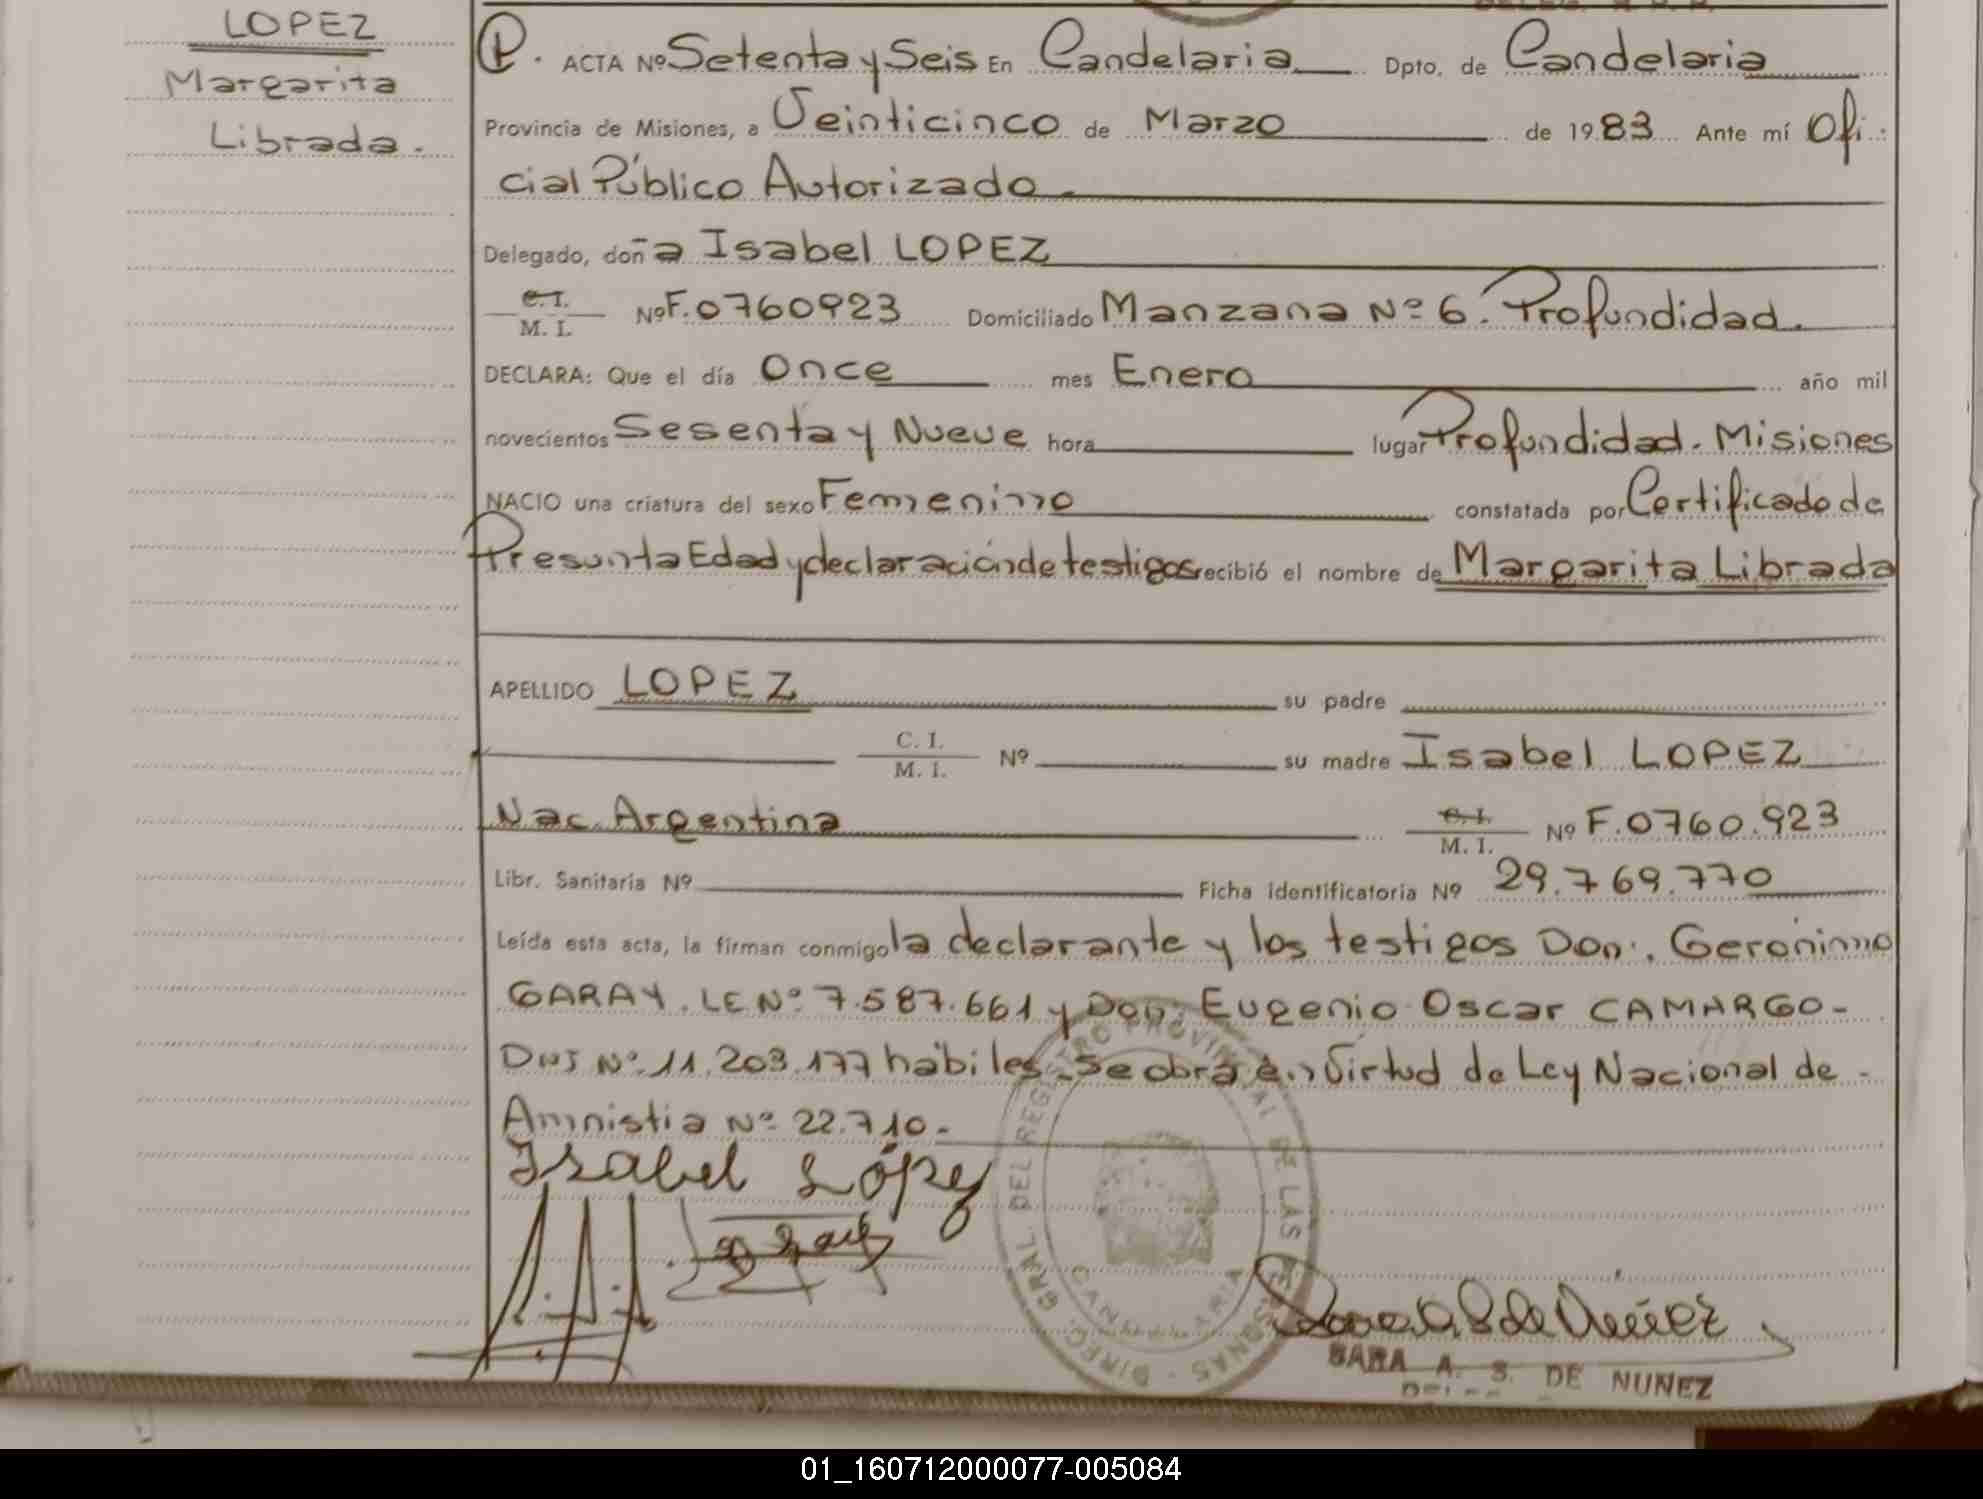 LOPEZ
Margarita
Librada.
P. ACTA Nº Setenta y Seis En Candelaria Dpto. de Candelaria
Provincia de Misiones, a Veinticinco de Marzo de 1983 Ante mí Ofi-
cial Público Autorizado.
Delegado, doña Isabel LOPEZ
C.I.
M. I. Nº F.0760923 Domiciliado Manzana Nº 6. Profundidad.
DECLARA: Que el día Once mes Enero año mil
novecientos Sesenta y Nueve hora lugar Profundidad. Misiones
NACIO una criatura del sexo Femenino constatada por Certificado de
Presunta Edad y declaración de testigos recibió el nombre de Margarita Librada
APELLIDO LOPEZ su padre
C. I.
M. I. Nº su madre Isabel LOPEZ
Nac. Argentina C.I.
M. I. Nº F.0760.923
Libr. Sanitaria Nº Ficha identificatoria Nº 29.769.770
Leída esta acta, la firman conmigo la declarante y los testigos Don: Gerónimo
GARAY. LE Nº 7.587.661 y Don: Eugenio Oscar CAMARGO-
DNI Nº 11.203.177 hábiles. Se obra en Virtud de Ley Nacional de -
Amnistia Nº 22.710.-
Isabel López
DIREC. GRAL. DEL REGISTRO PROVINCIAL DE LAS PERSONAS
CANDELARIA
SARA A. S. DE NUÑEZ
01_160712000077-005084